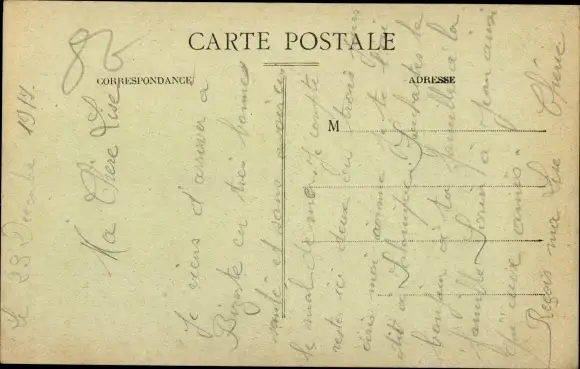 CARTE POSTALE
CORRESPONDANCE
ADRESSE
M
Le 23 Décembre 1917.
Ma Chère Lise
Je viens d'arriver à
Bizerte en très bonnes
santé et sans avoir eu
le mal de mer je compte
rester ici deux ou trois jours
moi comme je te l'ai
dit à
bonjour à ta famille à la
famille à Jean ainsi
qu'aux amies
Reçois ma Lise Chérie